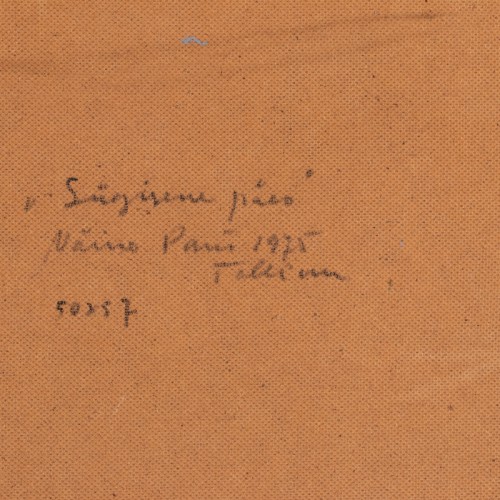 „Sügisene päev"
Väino Paris 1975
Tallinn
50x57